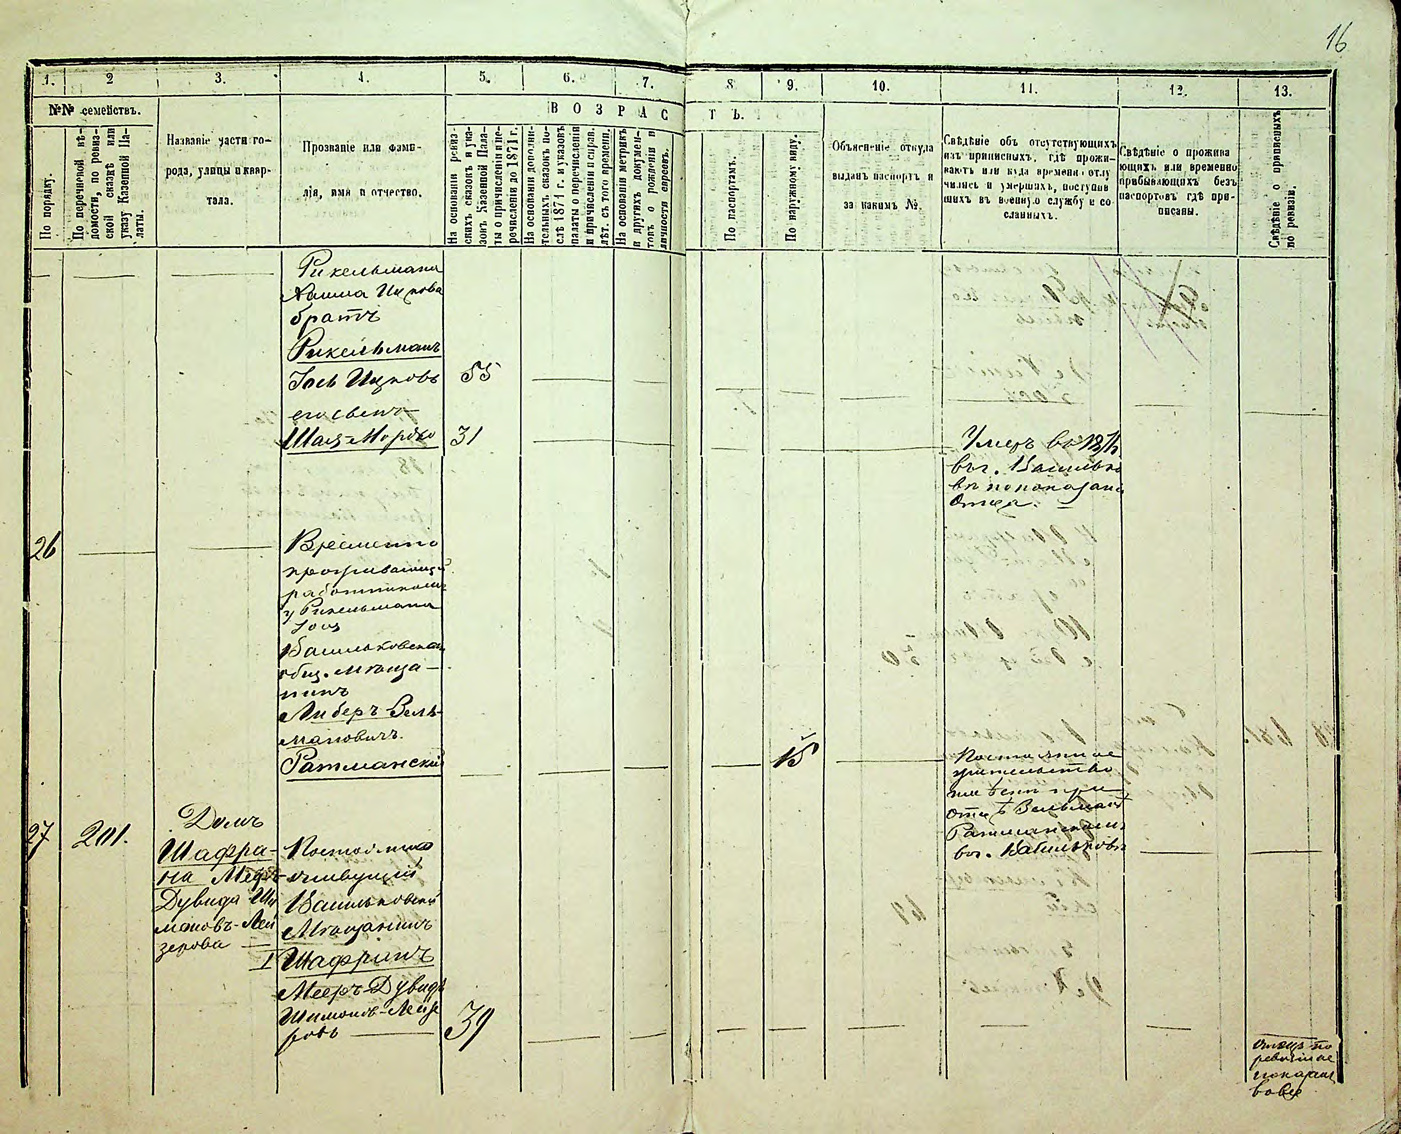 16
1.
2
3.
4.
5.
6.
7.
8
9.
10.
11.
12.
13.
№№ семействъ.
ВОЗРАС
ТЪ.
По порядку.
По перечневой вѣ-
домости, по ревиз-
ской сказкѣ или
указу Казенной Па-
латы.
Названіе части го-
рода, улицы и квар-
тала.
Прозваніе или фами-
лія, имя и отчество.
На основаніи ревиз-
скихъ сказокъ и ука-
зовъ Казенной Пала-
ты о причисленіи и пе-
речисленіи до 1871 г.
На основаніи дополни-
тельныхъ сказокъ по-
слѣ 1874 г. и указовъ
палаты о перечисленіи
и причисленіи и справ.
лѣт. съ того времени.
На основаніи метрикъ
и другихъ докумен-
товъ о рожденіи и
личности евреевъ.
По паспортамъ.
По наружному виду.
Объясненіе откуда
выданъ паспортъ и
за какимъ №.
Свѣдѣніе объ отсутствующихъ
изъ приписныхъ, гдѣ прожи-
ваютъ или куда временно отлу
чились и умершихъ, поступив
шихъ въ военную службу и со-
сланныхъ.
Свѣдѣніе о прожива
ющихъ или временно
прибывающихъ безъ
паспортовъ гдѣ при-
писаны.
Свѣдѣніе о приписныхъ
по ревизіи.
Рикельмана
Ицкова
братъ
Рикельманъ
Іось Ицковъ 55
его сынъ
Шая-Мордко 31
Умеръ въ
въ г. Василько
вѣ по показані
Отца.
26
Временно
проживающій
работникомъ
у Рикельмана
Іося
Васильковскій
общ. мѣща-
нинъ
Либеръ Зель-
мановичъ
Ратманскій
15
Постоянное
жительство
имѣетъ при
отцѣ Зельманѣ
Ратманскомъ
въ г. Васильковѣ
27 201.
Домъ
Шафра-
на Меера
Дувида Ши
монов-Лей
зерова
I
Постоянно
живущій
Васильковскій
Мѣщанинъ
Шафранъ
Мееръ-Дувидъ
Шимонов-Лейзе
ровъ 39